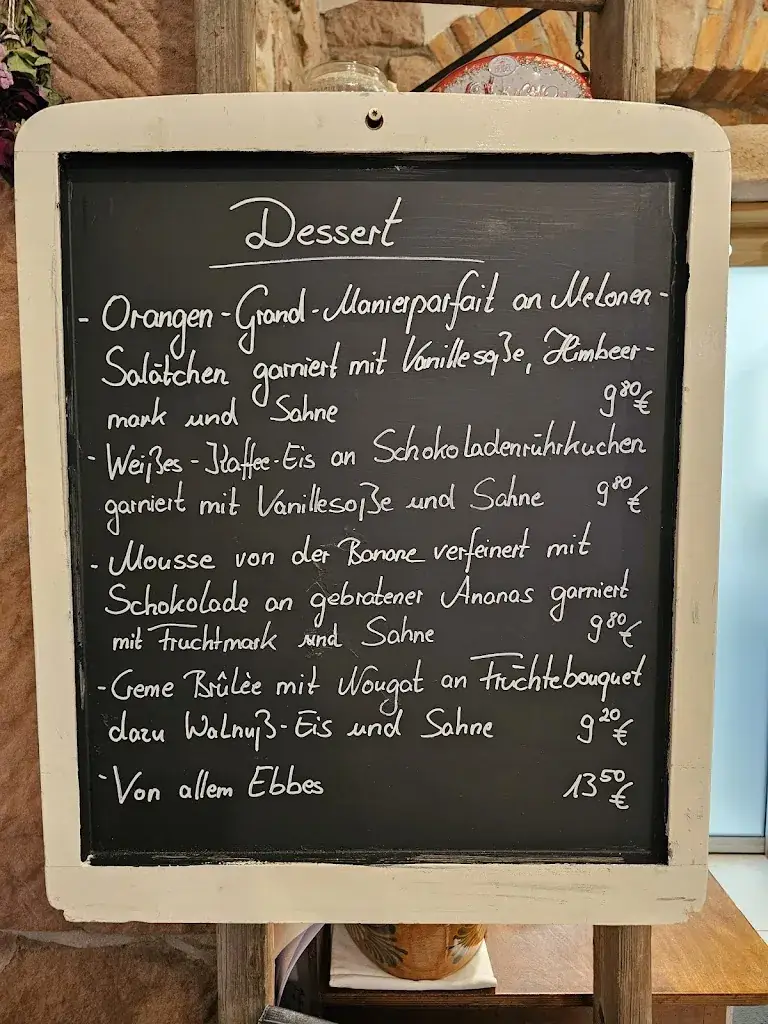 Dessert
- Orangen-Grand-Manierparfait an Melonen-
Salätchen garniert mit Vanillesoße, Himbeer-
mark und Sahne 9⁸⁰€
- Weißes-Kaffee-Eis an Schokoladenrührkuchen
garniert mit Vanillesoße und Sahne 9⁸⁰€
- Mousse von der Banane verfeinert mit
Schokolade an gebratener Ananas garniert
mit Fruchtmark und Sahne 9⁸⁰€
- Creme Brûlèe mit Nougat an Früchtebouquet
dazu Walnuß-Eis und Sahne 9²⁰€
- Von allem Ebbes 13⁵⁰€